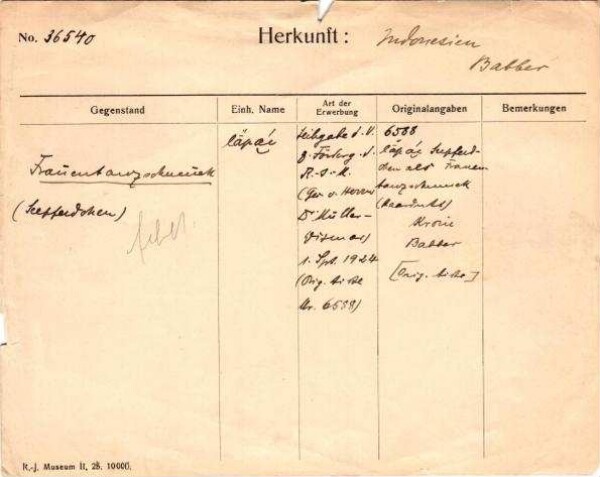 No. 36540
Herkunft: Indonesien
Babber
Gegenstand
Einh. Name
Art der
Erwerbung
Originalangaben
Bemerkungen
Frauentanzschmuck
(Seepferdchen)
fehlt.
läpái
Leihgabe d. V.
z. Förderg. d.
R.-J.-M.
(Ges. v. Herrn
Dr Müller-
Wismar)
1. Spt. 1924
(Orig. Liste
Nr. 6588)
6588
läpái Seepferd-
chen als Frauen
tanzschmuck
Babber
[Orig. Liste.]
R.-J. Museum II, 25. 10000.